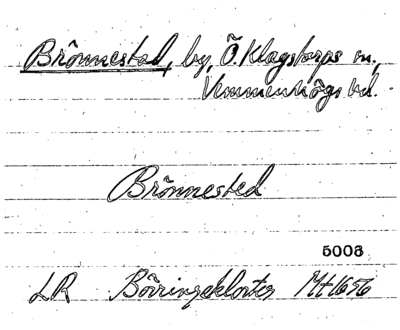 Brönnestad, by, Ö. Klagstorps sn,
Vemmenhögs hd.
Brönnested
5006
LR Börringekloster Mt 1656